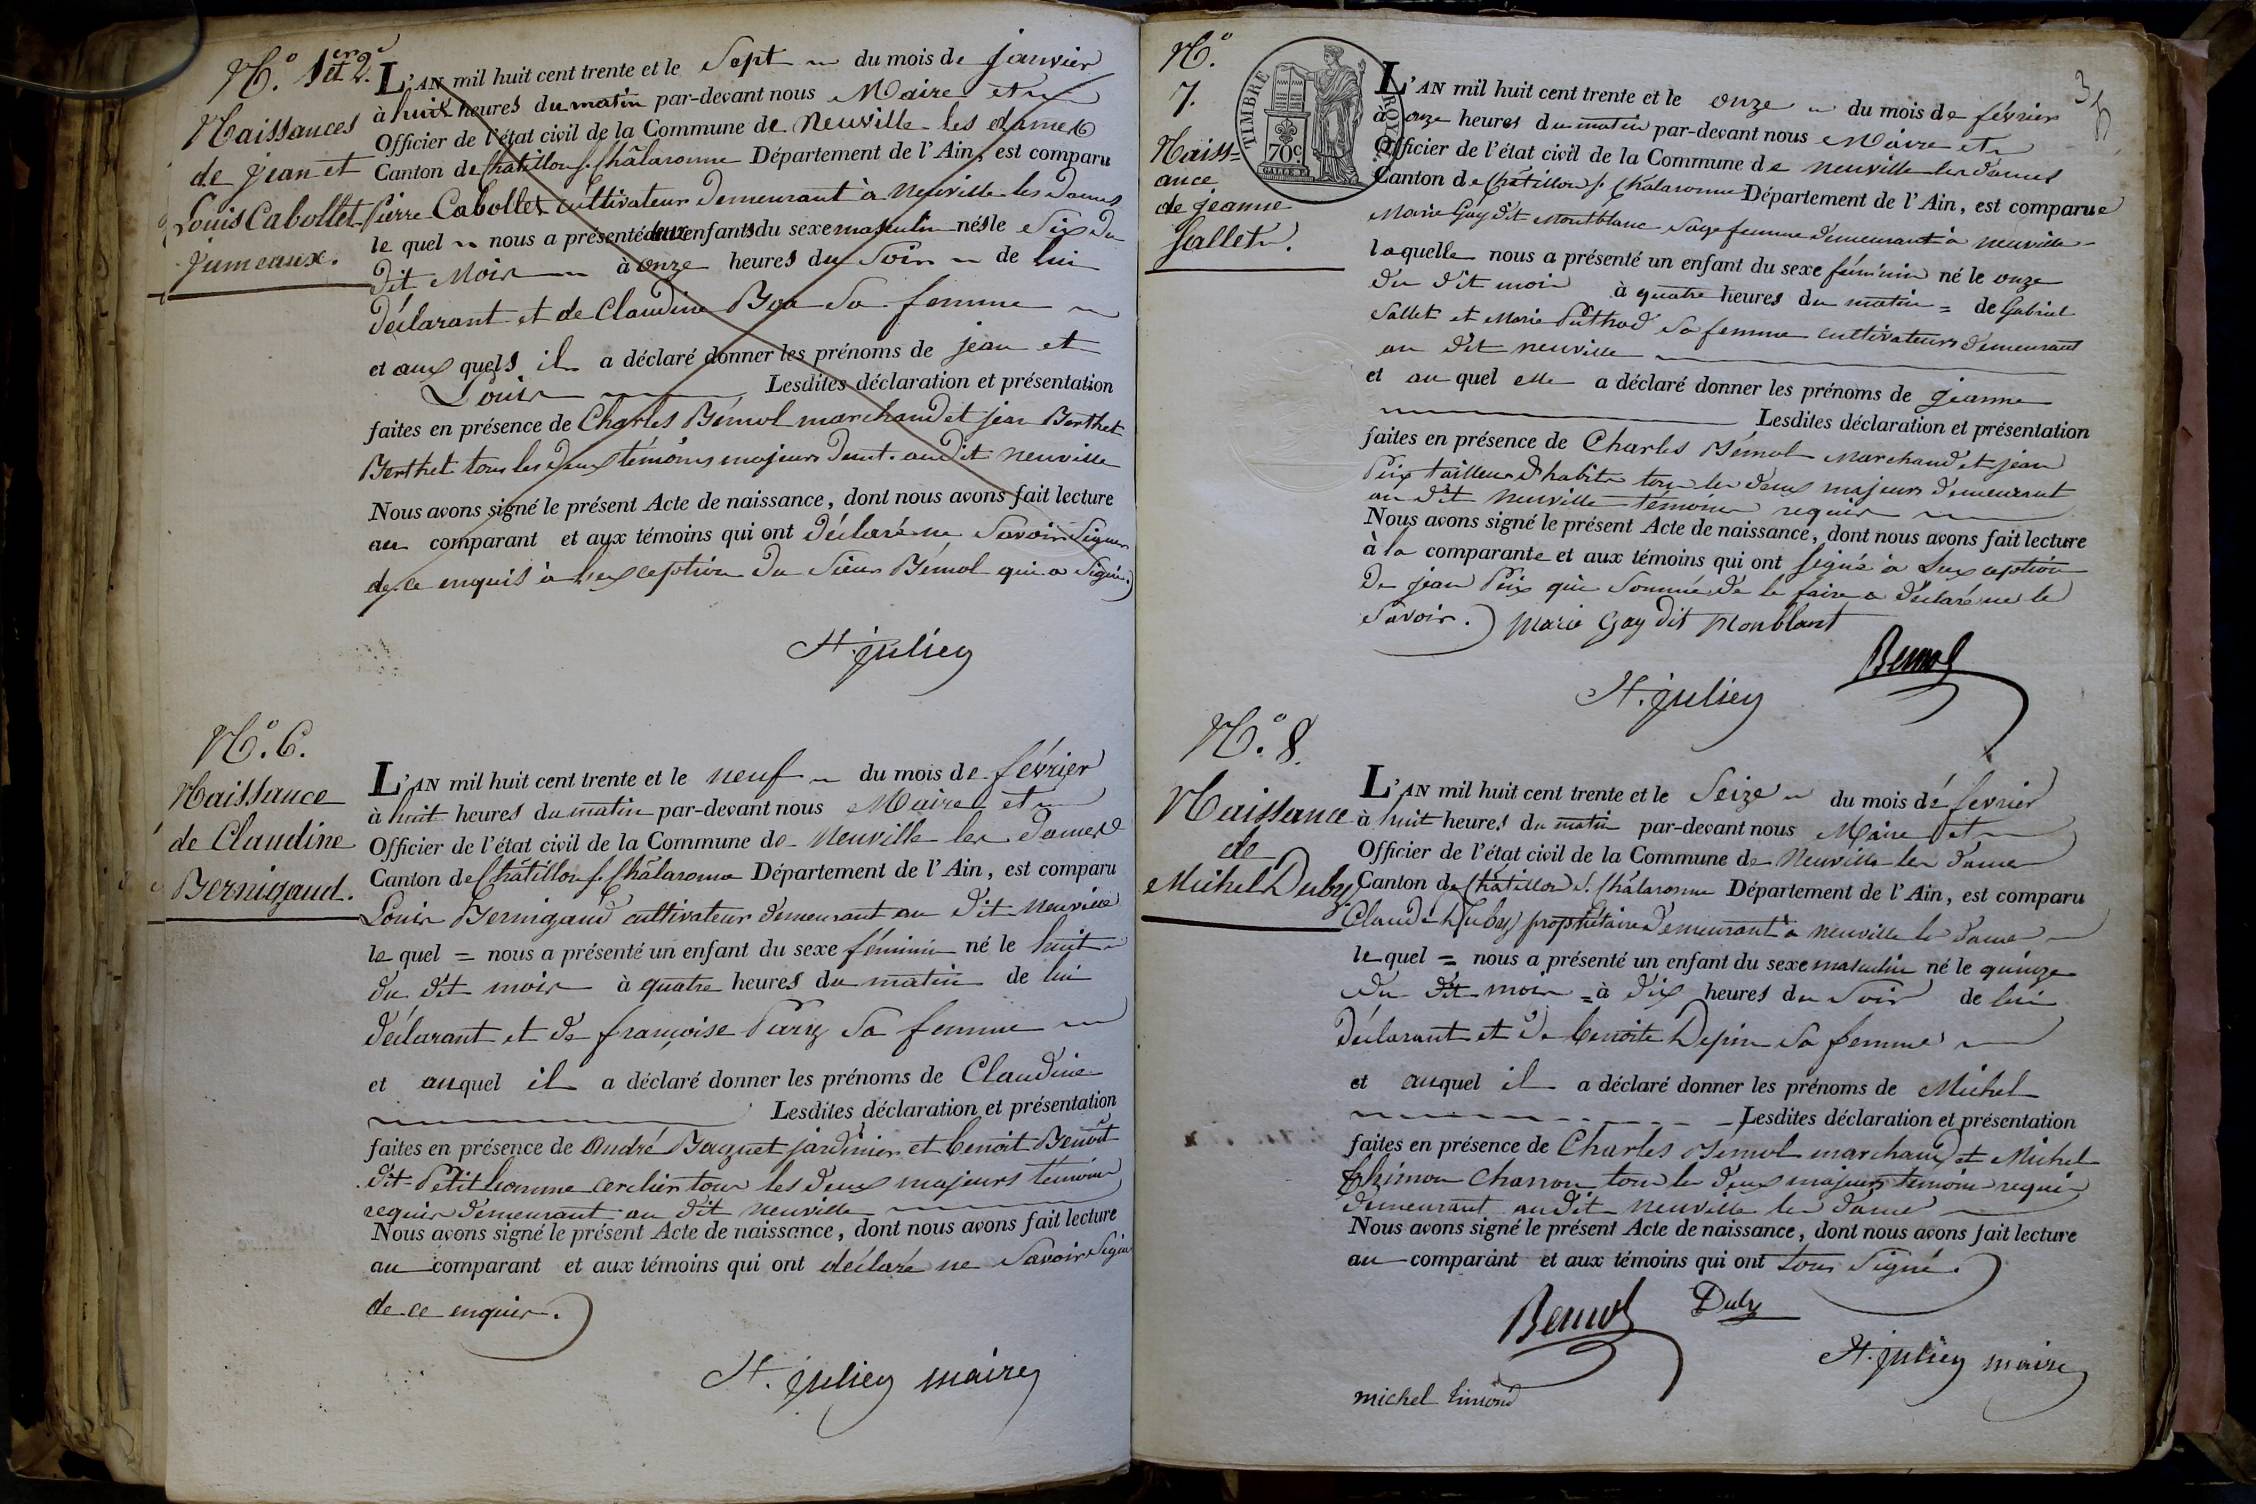 N.º 1er et 2.e
Naissances
de jean et
Louis Cabollet
jumeaux.
L'AN mil huit cent trente et le Sept du mois de janvier
à huit heures du matin par-devant nous Maire et
Officier de l'état civil de la Commune de Neuville les dames
Canton de Châtillon s. Châlaronne Département de l'Ain, est comparu
Pierre Cabollet cultivateur demeurant à Neuville les dames
le quel nous a présenté deux enfants du sexe masculin nés le Six du
dit Mois à onze heures du Soir de lui
déclarant et de Claudine Sa femme
et aux quels il a déclaré donner les prénoms de jean et
Louis Lesdites déclaration et présentation
faites en présence de Charles Bémol marchand et jean Berthet
Berthet tous les deux témoins majeurs demt. au dit Neuville
Nous avons signé le présent Acte de naissance, dont nous avons fait lecture
au comparant et aux témoins qui ont déclaré ne Savoir Signer
de ce enquis à l'exception du Sieur Bémol qui a Signé.)
St. julien
N.º 6.
Naissance
de Claudine
Bernigaud.
L'AN mil huit cent trente et le neuf du mois de février
à huit heures du matin par-devant nous Maire et
Officier de l'état civil de la Commune de Neuville les dames
Canton de Châtillon s. Châlaronne Département de l'Ain, est comparu
Louis Bernigaud cultivateur demeurant au dit Neuville
le quel = nous a présenté un enfant du sexe féminin né le huit
du dit mois à quatre heures du matin de lui
déclarant et de françoise Sa femme
et auquel il a déclaré donner les prénoms de Claudine
Lesdites déclaration et présentation
faites en présence de André Baquet jardinier et benoit Benoit
dit Petit homme cerclier tous les deux majeurs témoins
requis demeurant au dit Neuville
Nous avons signé le présent Acte de naissance, dont nous avons fait lecture
au comparant et aux témoins qui ont déclaré ne Savoir Signer
de ce enquis.)
St. julien maire
N.º
7.
Naiss=
ance
de jeanne
Sallet.
TIMBRE ROYAL
70c.
35
L'AN mil huit cent trente et le onze du mois de février
à onze heures du matin par-devant nous Maire et
Officier de l'état civil de la Commune de Neuville les dames
Canton de Châtillon s. Châlaronne Département de l'Ain, est comparue
Marie Gay dit Montblanc Sage femme demeurant à Neuville
laquelle nous a présenté un enfant du sexe féminin né le onze
du dit mois à quatre heures du matin = de Gabriel
Sallet et Marie Puthod Sa femme cultivateurs demeurant
au dit Neuville
et au quel elle a déclaré donner les prénoms de jeanne
Lesdites déclaration et présentation
faites en présence de Charles Bémol Marchand et jean
Peix tailleur d'habits tous les deux majeurs demeurant
au dit Neuville témoins requis
Nous avons signé le présent Acte de naissance, dont nous avons fait lecture
à la comparante et aux témoins qui ont signé à L'exception
De jean Peix qui Sommé de le faire a déclaré ne le
Savoir.) Marie Gay dit Monblant
Bemol
St. julien
N.º 8.
Naissance
de
Michel Duby
L'AN mil huit cent trente et le Seize du mois de février
à huit heures du matin par-devant nous Maire et
Officier de l'état civil de la Commune de Neuville les dames
Canton de Châtillon s. Châlaronne Département de l'Ain, est comparu
Claude Duby propriétaire demeurant à Neuville les dames
le quel = nous a présenté un enfant du sexe masculin né le quinze
du dit mois = à dix heures du Soir de lui
déclarant et de benoite Depin Sa femme
et auquel il a déclaré donner les prénoms de Michel
Lesdites déclaration et présentation
faites en présence de Charles Bémol marchand et Michel
Charron tous les deux majeurs témoins requis
demeurant au dit Neuville les dames
Nous avons signé le présent Acte de naissance, dont nous avons fait lecture
au comparant et aux témoins qui ont tous Signé.)
Bemol Duby
St. julien maire
michel